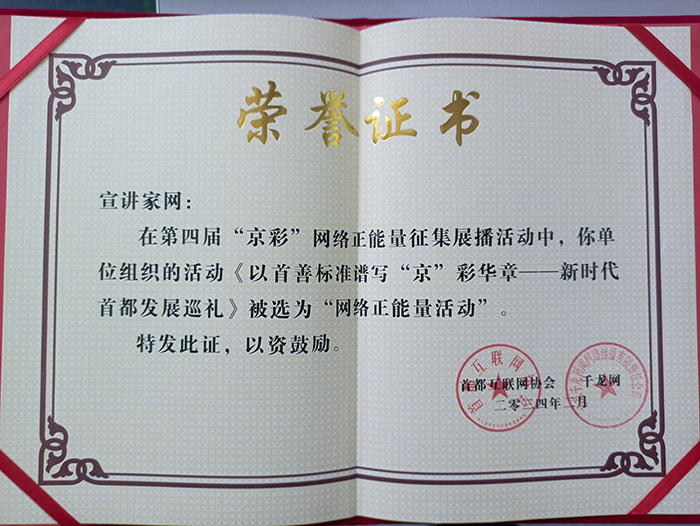 荣誉证书
宣讲家网：
在第四届“京彩”网络正能量征集展播活动中，你单
位组织的活动《以首善标准谱写“京”彩华章——新时代
首都发展巡礼》被选为“网络正能量活动”。
特发此证，以资鼓励。
首都互联网协会 千龙网
二零二四年二月